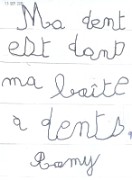 Ma dent
est dans
ma boîte
a dents,
Ramy